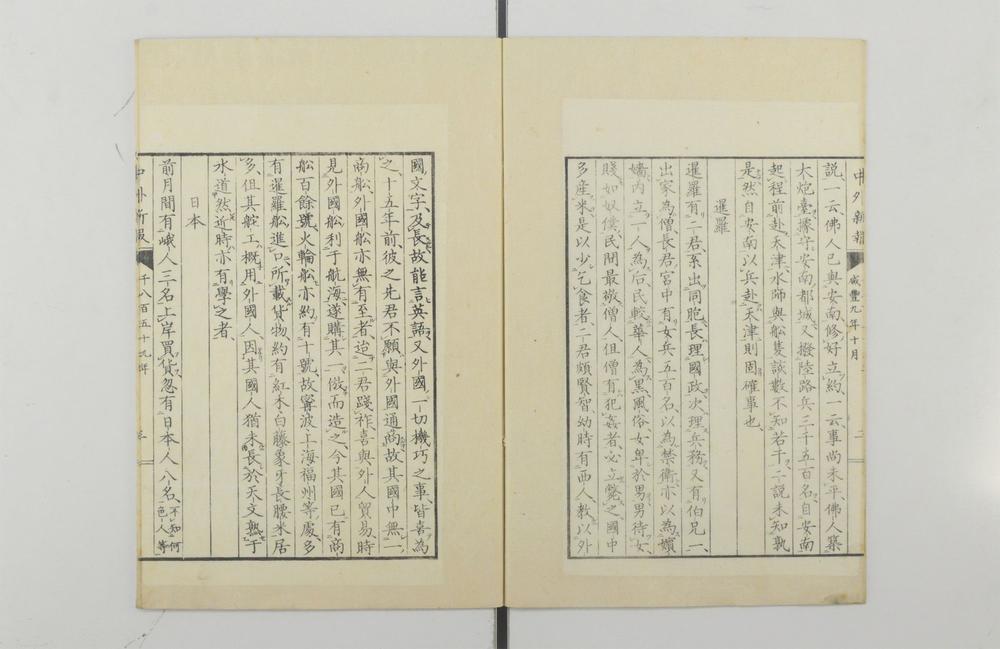 中外新報 咸豐九年十月 二
說、一云佛人已與安南修好立約、一云事尚未平、佛人築
大炮臺據守安南都城、又撥陸路兵三千五百名、自安南
起程前赴天津、水師與舩隻該數不知若干、二說未知孰
是、然自安南以兵赴天津、則固確事也、
暹羅
暹羅有二君、系出同胞、長理國政、次理兵務、又有伯兄一、
出家為僧、長君宮中有女兵五百名、以為禁衛、亦以為嬪
嬙、內立一人為后、民較華人為黑、風俗女卑於男、男待女
賤如奴僕、民間最敬僧人、但僧有犯姦者、必立斃之、國中
多産米、是以少乞食者、二君頗賢智、幼時有西人教以外
國文字、及長故能言英語、又外國一切機巧之事、皆喜為
之、十五年前、彼之先君不願與外國通商、故其國中無一
商舩、外國舩亦無有至者、迨二君踐祚、喜與外人貿易、時
見外國舩利于航海、遂購其一、倣而造之、今其國已有商
舩百餘號、火輪舩亦約有十號、故寧波上海福州等處、多
有暹羅舩進口、所載貨物、約有紅木白藤象牙長腰米居
多、但其舵工、概用外國人、因其國人猶未長於天文熟于
水道、然近時亦有學之者、
日本
前月間有峨人三名、上岸買貨、忽有日本人八名、不知何色人等
中外新報 千八百五十九年